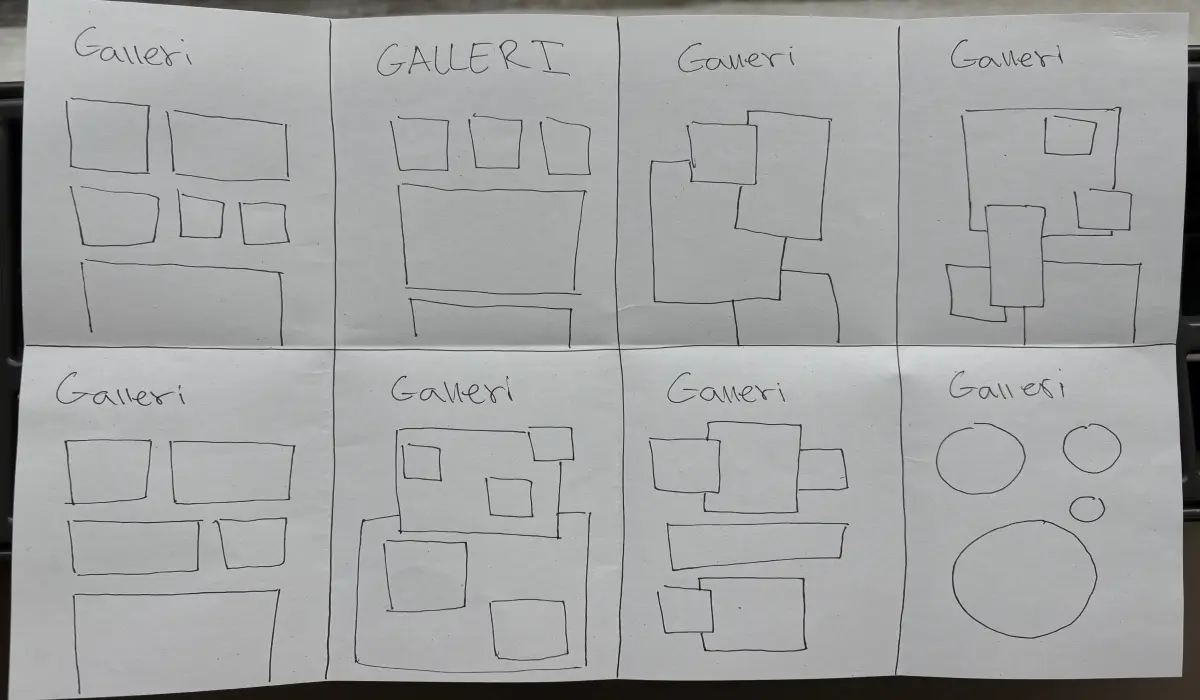 Galleri
GALLERI
Galleri
Galleri
Galleri
Galleri
Galleri
Galleri